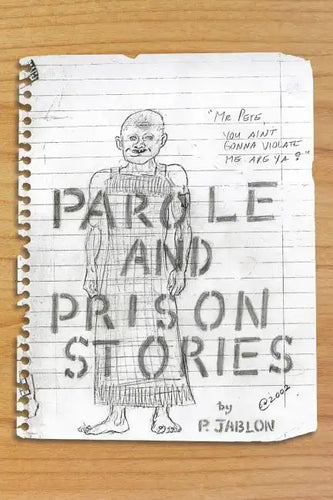 "MR PETE,
YOU AINT
GONNA VIOLATE
ME ARE YA?"
PAROLE
AND
PRISON
STORIES
by
P. JABLON
©2002